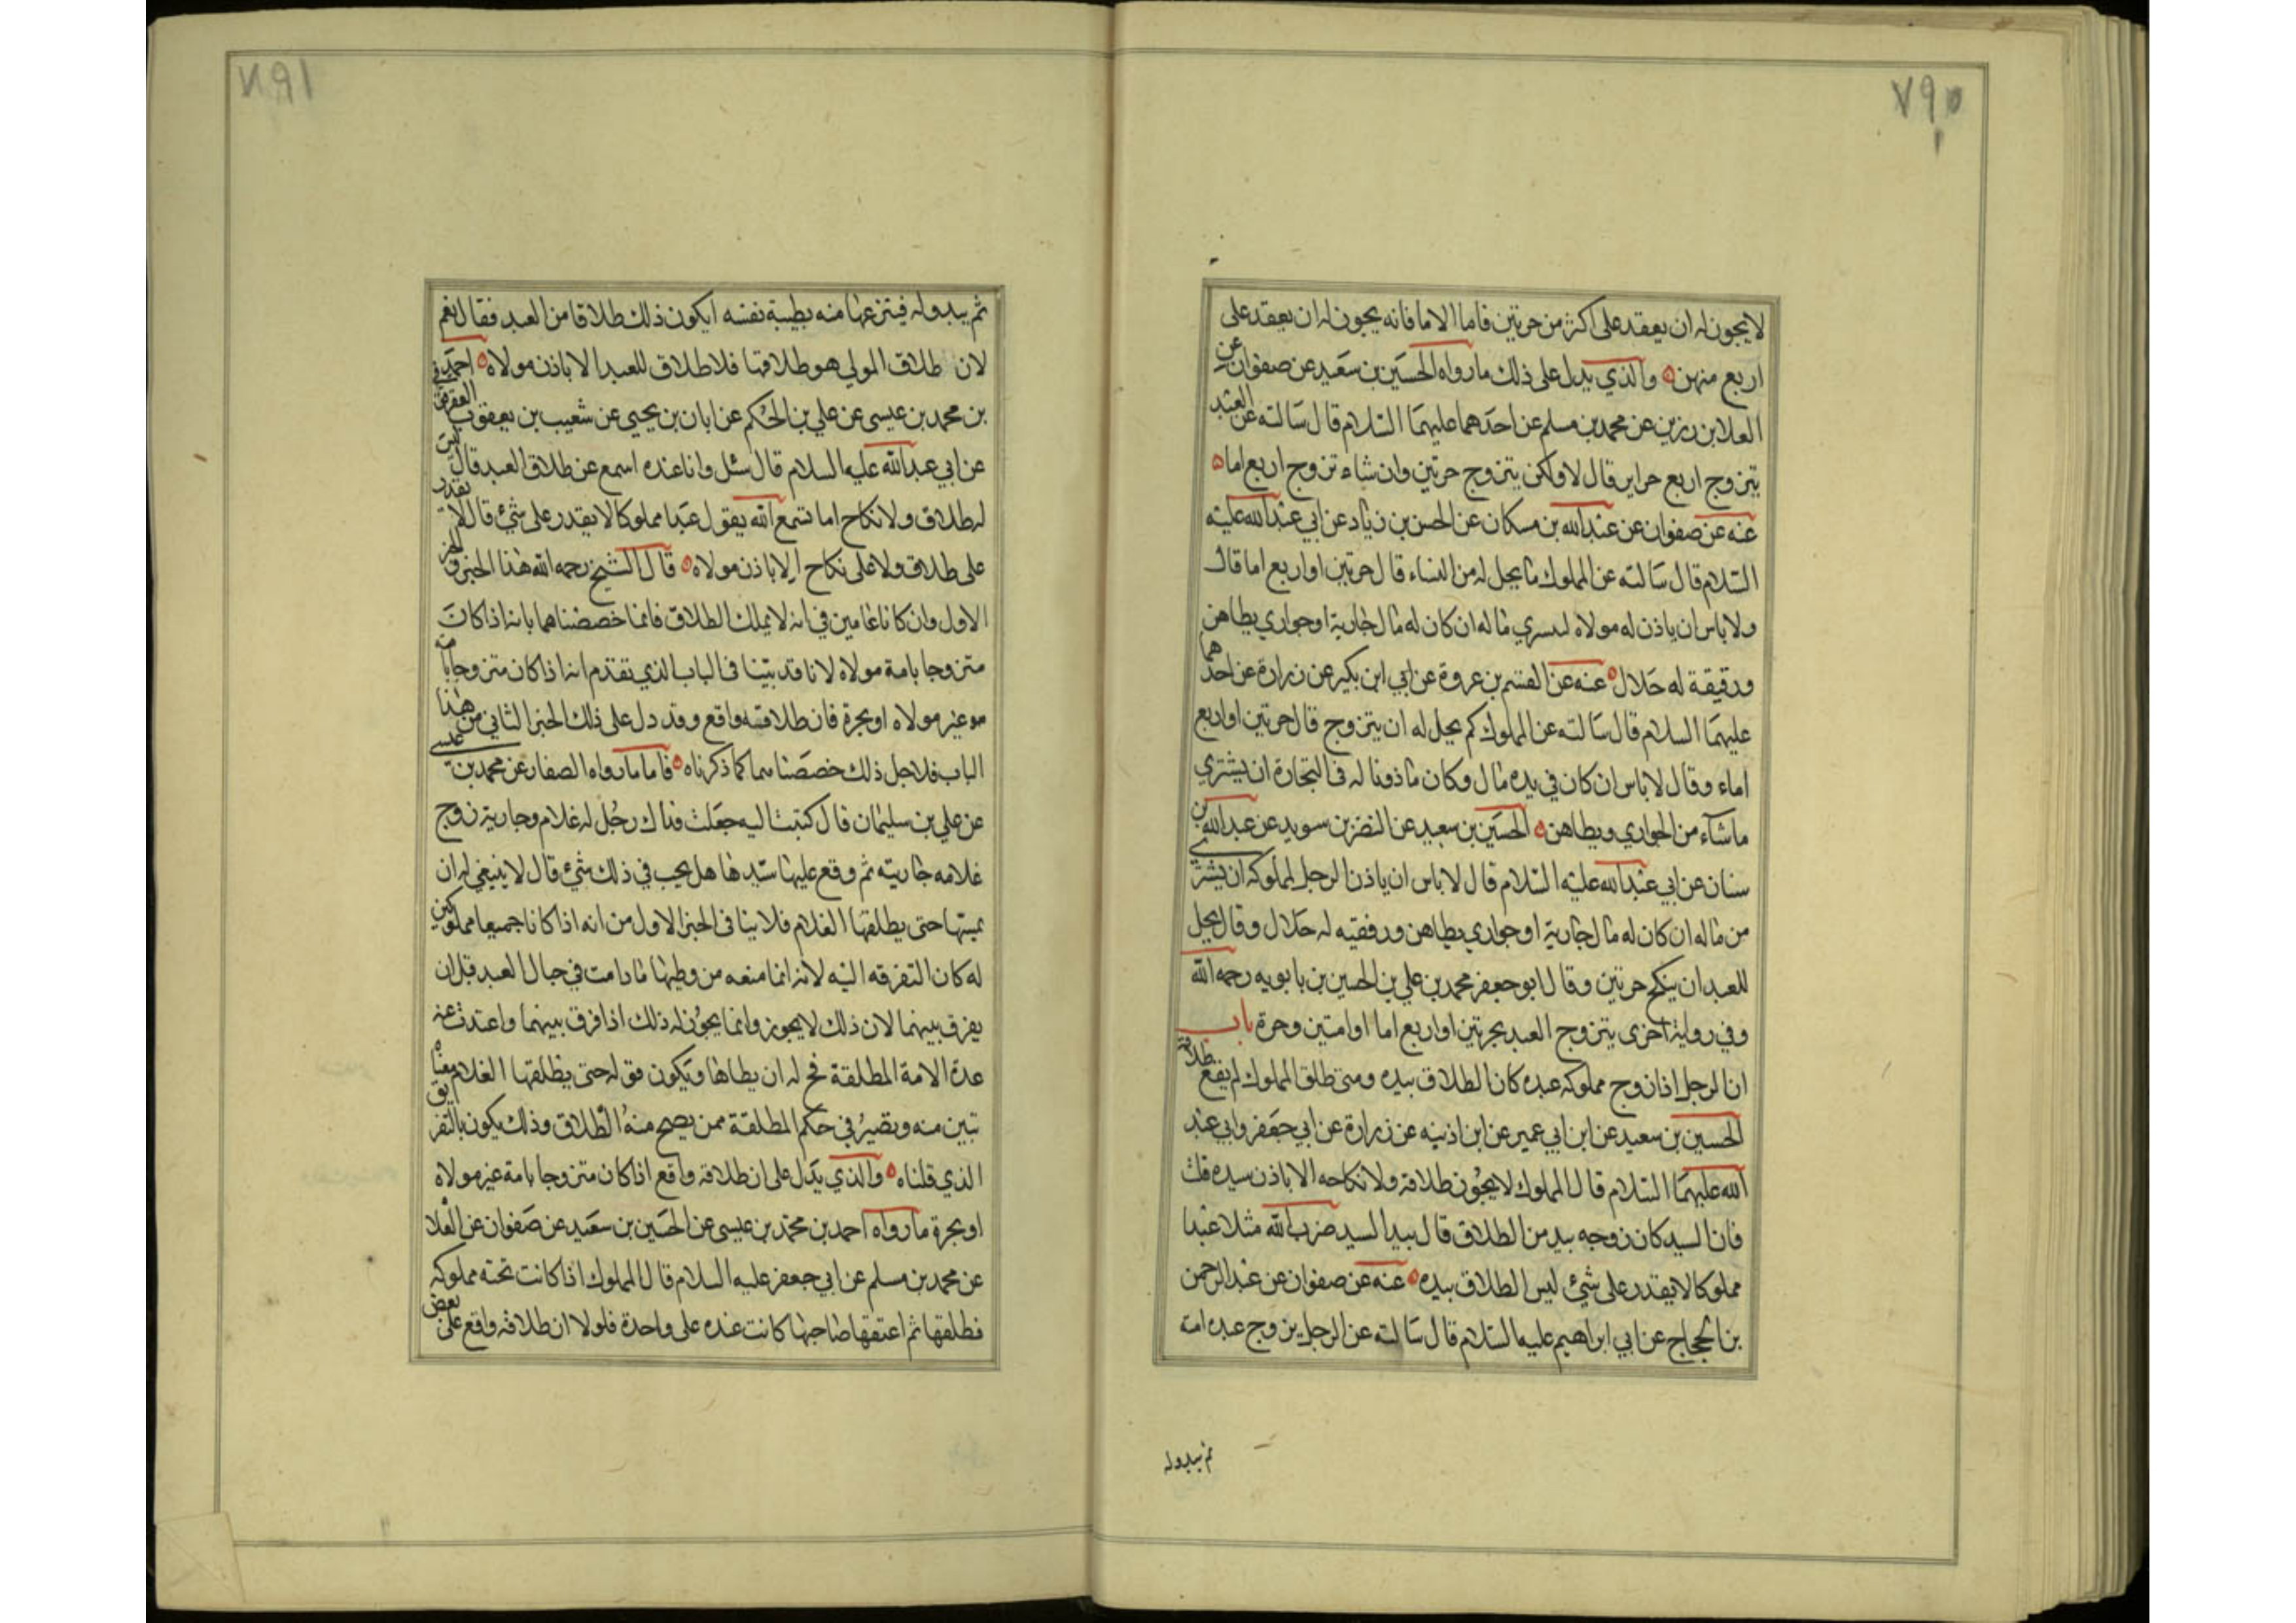 ٧٩٠
لا يجوز له ان يعقد على اكثر من حرتين فاما الاما فانه يجوز له ان يعقد على
اربع منهن والذي يدل على ذلك ما رواه الحسين بن سعيد عن صفوان عن
العلا بن رزين عن محمد بن مسلم عن احدهما عليهما السلام قال سالته عن العبد
يتزوج اربع حراير قال لا ولكن يتزوج حرتين وان شاء تزوج اربع اما
عنه عن صفوان عن عبدالله بن مسكان عن الحسن بن زياد عن ابي عبدالله عليه
السلام قال سالته عن المملوك ما يحل له من النساء قال حرتين او اربع اما قال
ولا باس ان ياذن له مولاه ماله ان كان له مال جارية او جواري يطاهن
ورقيقة له حلال عنه عن القسم بن عروة عن ابي ابن بكير عن زرارة عن احدهما
عليهما السلام قال سالته عن المملوك كم يحل له ان يتزوج قال حرتين او اربع
اماء وقال لا باس ان كان في يده مال وكان ماذونا له في التجارة ان يشتري
ما شاء من الجواري ويطاهن الحسين بن سعيد عن النضر بن سويد عن عبدالله بن
سنان عن ابي عبدالله عليه السلام قال لا باس ان ياذن الرجل لمملوكه ان يشتري
من ماله ان كان له مال جارية او جواري يطاهن ورقيقه له حلال وقال يحل
للعبد ان ينكح حرتين وقال ابو جعفر محمد بن علي بن الحسين بن بابويه رحمه الله
وفي رواية اخرى يتزوج العبد بحرتين او اربع اما او امتين وحرة باب
ان الرجل اذا زوج مملوكه عبده كان الطلاق بيده ومتى طلق المملوك لم يقع طلاقه
الحسين بن سعيد عن ابن ابي عمير عن ابن اذينه عن زرارة عن ابي جعفر وابي عبد
الله عليهما السلام قال المملوك لا يجوز طلاقه ولا نكاحه الا باذن سيده قلت
فان السيد كان زوجه بيد من الطلاق قال بيد السيد ضرب الله مثلا عبدا
مملوكا لا يقدر على شئ ليس الطلاق بيده عنه عن صفوان عن عبدالرحمن
بن الحجاج عن ابي ابراهيم عليه السلام قال سالته عن الرجل يزوج عبده امته
ثم يبدوله
٧٩١
ثم يبدو له فينزعها منه بطيبة نفسه ايكون ذلك طلاقا من العبد فقال نعم
لان طلاق المولي هو طلاقها فلا طلاق للعبد الا باذن مولاه احمد
بن محمد بن عيسى عن علي بن الحكم عن ابان بن يحيى عن شعيب بن يعقوب العقرقوفي
عن ابي عبدالله عليه السلام قال سئل وانا عنده اسمع عن طلاق العبد قال ليس
له طلاق ولا نكاح اما تسمع الله يقول عبدا مملوكا لا يقدر على شئ قال لا يقدر
على طلاق ولا على نكاح الا باذن مولاه قال الشيخ رحمه الله هذا الخبر والخبر
الاول وان كانا عامين في انه لا يملك الطلاق فانما خصصناهما بانه اذا كان
متزوجا بامة مولاه لانا قد بينا في الباب الذي تقدم انه اذا كان متزوجا بامة
غير مولاه او بحرة فان طلاقه واقع وقد دل على ذلك الخبر الثاني من هذا
الباب فلاجل ذلك خصصناهما كما ذكرناه فاما ما رواه الصفار عن محمد بن عيسى
عن علي بن سليمان قال كتبت اليه جعلت فداك رجل له غلام وجارية زوج
غلامه جاريته ثم وقع عليها سيدها هل يجب في ذلك شئ قال لا ينبغي له ان
يمسها حتى يطلقها الغلام فلا ينافي الخبر الاول من انه اذا كانا جميعا مملوكين
له كان التفرقه اليه لانه انما منعه من وطيها ما دامت في حبال العبد قبل ان
يفرق بينهما لان ذلك لا يجوز وانما يجوز له ذلك اذا فرق بينهما واعتدت عنه
عدة الامة المطلقة فح له ان يطاها ويكون قوله حتى يطلقها الغلام معناه
تبين منه وتصير في حكم المطلقة ممن يصح منه الطلاق وذلك يكون بالتفريق
الذي قلناه والذي يدل على ان طلاقه واقع اذا كان متزوجا بامة غير مولاه
او بحرة ما رواه احمد بن محمد بن عيسى عن الحسين بن سعيد عن صفوان عن العلا
عن محمد بن مسلم عن ابي جعفر عليه السلام قال المملوك اذا كانت تحته مملوكه
فطلقها ثم اعتقها صاحبها كانت عنده على واحدة فلولا ان طلاقه واقع على بعض